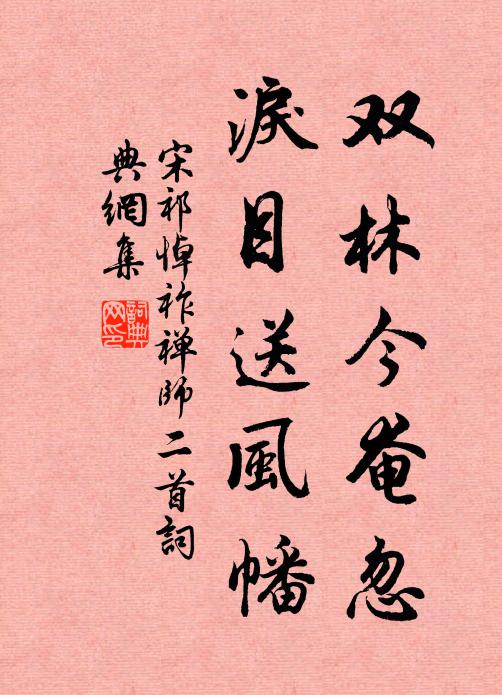 双林今奄忽
淚目送風幡
宋祁悼祚禅師二首詞
典網集
詞典网印